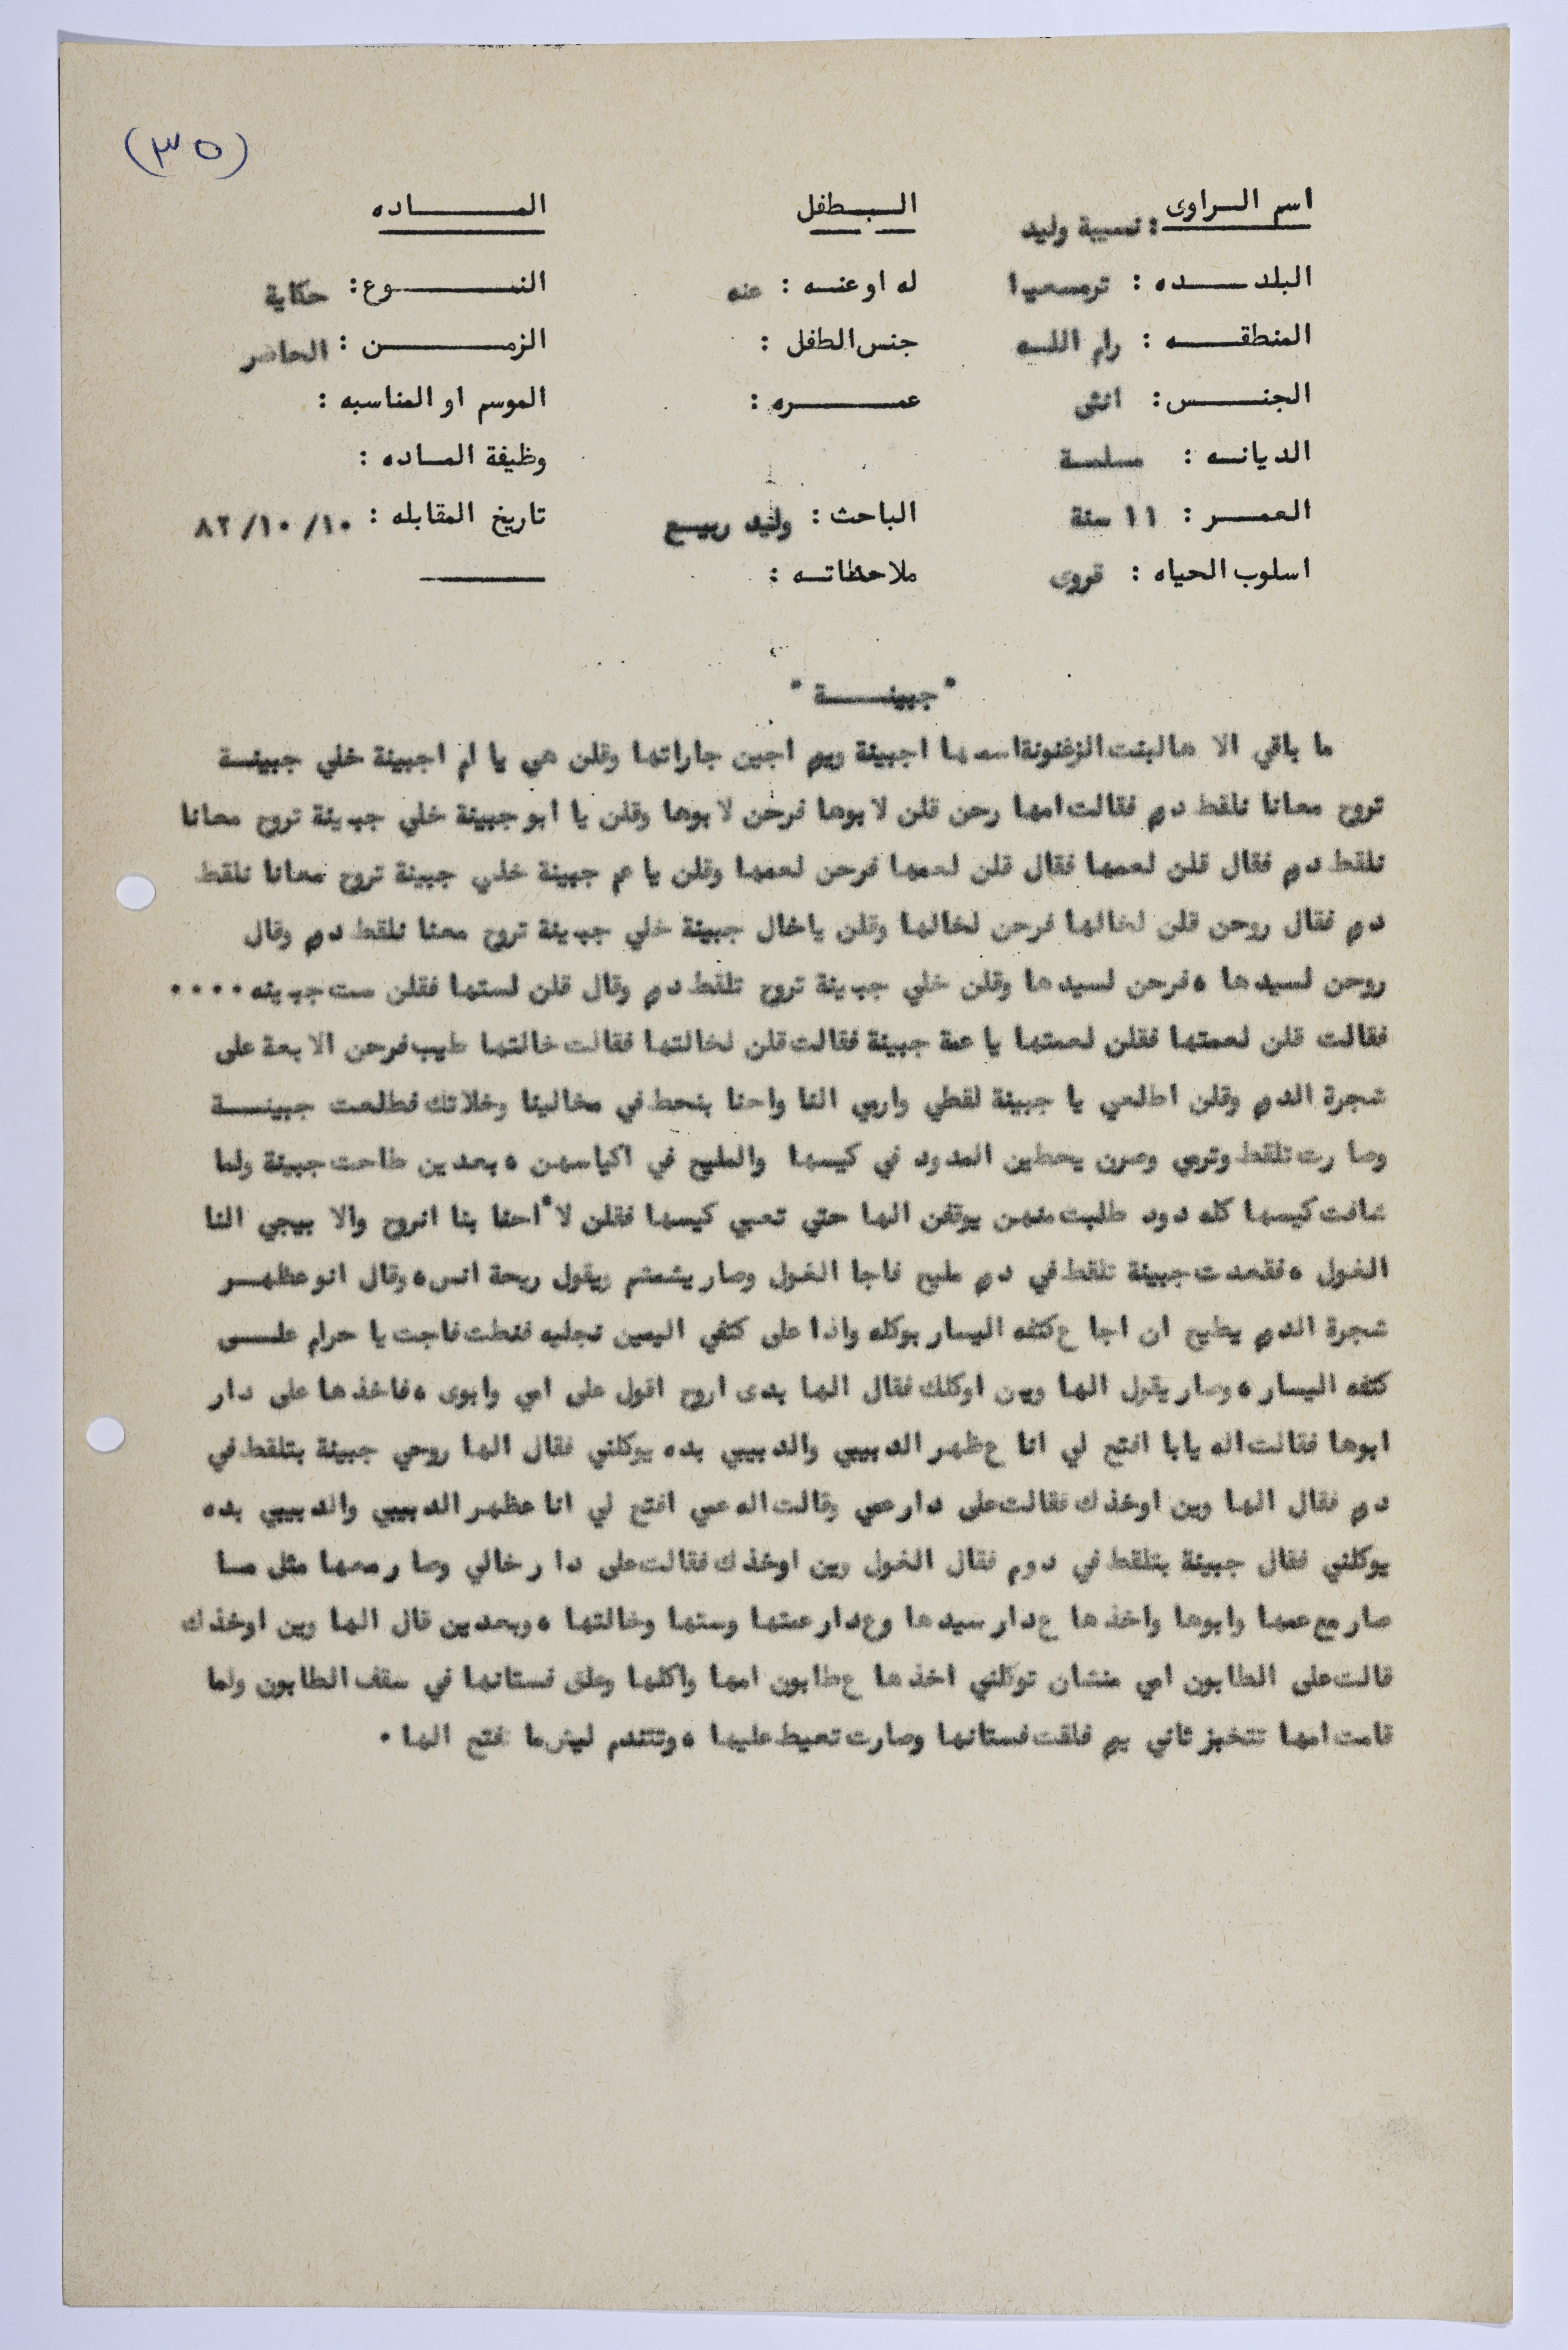 (٣٥)
اسم الراوى : نسيبة وليد
الطفل
الماده
البلده : ترمسعيا
له او عنه : عنه
النوع : حكاية
المنطقه : رام الله
جنس الطفل :
الزمن : الحاضر
الجنس : انثى
عمره :
الموسم او المناسبه :
الديانه : مسلمة
وظيفة الماده :
العمر : ١١ سنة
الباحث : وليد ربيع
تاريخ المقابله : ١٠/١٠/٨٢
اسلوب الحياه : قروى
ملاحظاته :
" جبينة "
ما باقي الا هالبنت الزغنونة اسمها اجبينة ويوم اجين جاراتها وقلن هي يا ام اجبينة خلي جبينة
تروح معانا نلقط دوم فقالت امها رحن قلن لابوها فرحن لابوها وقلن يا ابو جبينة خلي جبينة تروح معانا
نلقط دوم فقال قلن لعمها فقال قلن لعمها فرحن لعمها وقلن يا عم جبينة خلي جبينة تروح معانا نلقط
دوم فقال روحن قلن لخالها فرحن لخالها وقلن ياخال جبينة خلي جبينة تروح معنا نلقط دوم وقال
روحن لسيدها ٥ فرحن لسيدها وقلن خلي جبينة تروح تلقط دوم وقال قلن لستها فقلن ست جبينه ....
فقالت قلن لعمتها فقلن لعمتها يا عمة جبينة فقالت قلن لخالتها فقالت خالتها طيب فرحن الابعة على
شجرة الدوم وقلن اطلعي يا جبينة لقطي وارمي النا واحنا بنحط في مخالينا وخلاتك فطلعت جبينة
وصارت تلقط وترمي وصرن يحطين المدود في كيسها والمليح في اكياسهن ٥ بعدين طاحت جبينة ولما
شافت كيسها كله دود طلبت منهن يوقفن الها حتي تعبي كيسها فقلن لا "احنا بنا انروح والا بيجي النا
الغول ٥ فقعدت جبينة تلقط في دوم مليح فاجا الغول وصار يشمشم ويقول ريحة انس ٥ وقال انو عظهر
شجرة الدوم يطيح ان اجا ع كتفه اليسار بوكله واذا على كتفي اليمين نجليه فنطت فاجت يا حرام على
كتفه اليسار ٥ وصار يقول الها وين اوكلك فقال الها بدى اروح اقول على امي وابوى ٥ فاخذها على دار
ابوها فقالت اله يابا افتح لي انا ع ظهر الدبيبي والدبيبي بده يوكلني فقال الها روحي جبينة بتلقط في
دوم فقال الها وين اوخذك فقالت على دار عمي وقالت اله عمي افتح لي انا عظهر الدبيبي والدبيبي بده
يوكلني فقال جبينة بتلقط في دوم فقال الغول وين اوخذك فقالت على دار خالي وصار معها مثل ما
صار مع عمها وابوها واخذها ع دار سيدها وع دار عمتها وستها وخالتها ٥ وبعدين قال الها وين اوخذك
قالت على الطابون امي منشان توكلني اخذها ع طابون امها واكلها وعلق فستانها في سقف الطابون ولما
قامت امها تتخبز ثاني يوم فلقت فستانها وصارت تعيط عليها ٥ وتتندم ليش ما فتح الها .